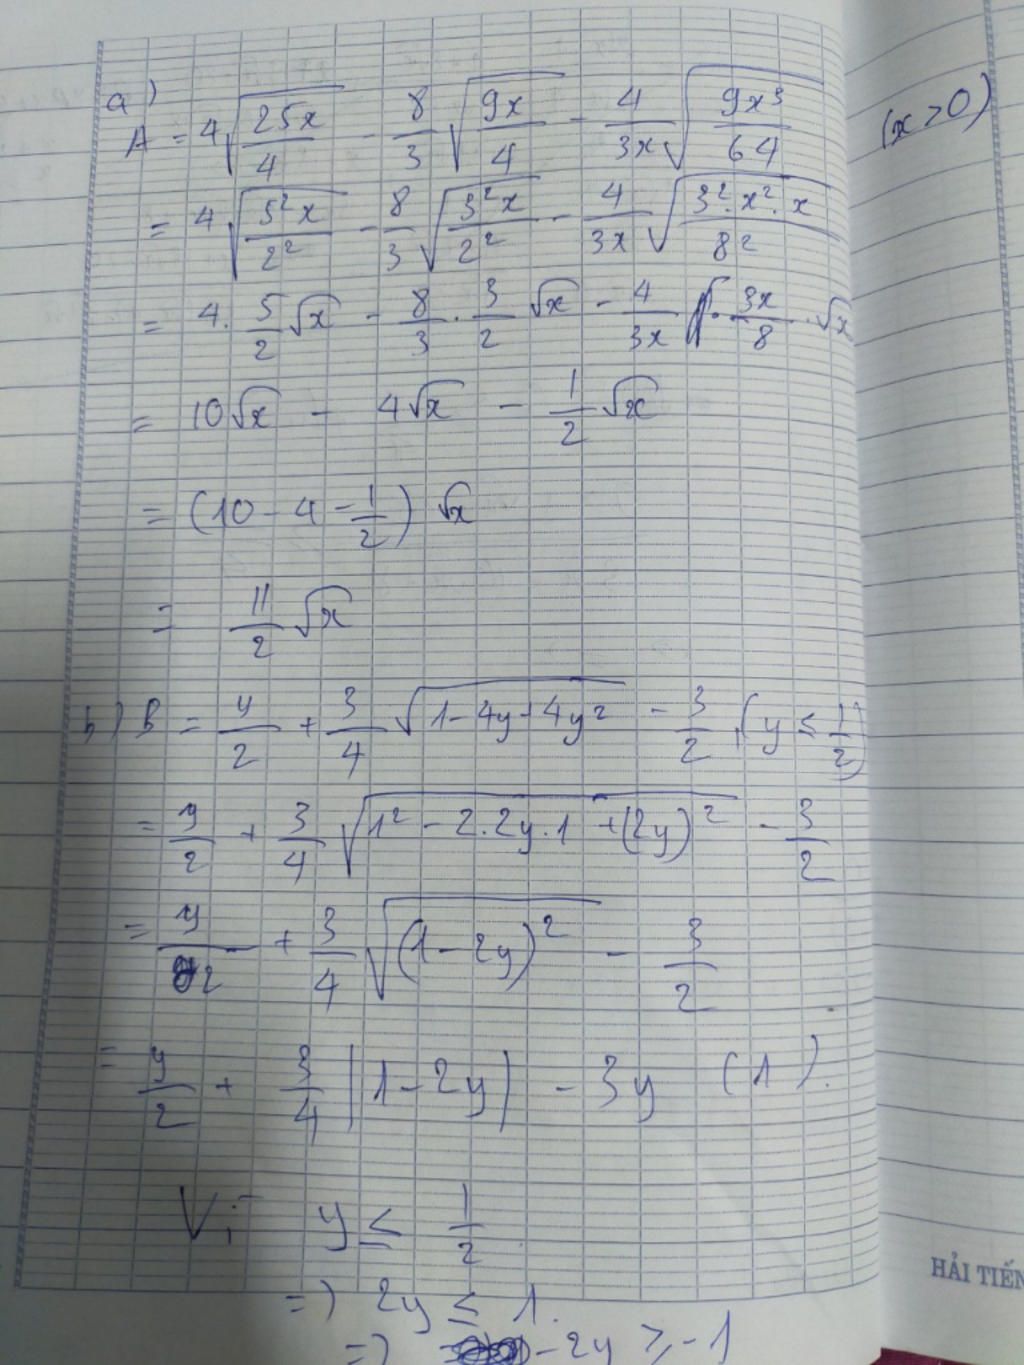 a)
A = 4√(25x/4) - 8/3 √(9x/4) - 4/3x √(9x³/64) (x > 0)
= 4√(5²x/2²) - 8/3 √(3²x/2²) - 4/3x √(3².x².x/8²)
= 4. 5/2 √x - 8/3 . 3/2 √x - 4/3x . 3x/8 . √x
= 10√x - 4√x - 1/2 √x
= (10 - 4 - 1/2) √x
= 11/2 √x
b) B = y/2 + 3/4 √(1 - 4y + 4y²) - 3/2 (y ≤ 1/2)
= y/2 + 3/4 √(1² - 2.2y.1 + (2y)²) - 3/2
= y/2 + 3/4 √((1 - 2y)²) - 3/2
= y/2 + 3/4 |1 - 2y| - 3y (1).
Vì y ≤ 1/2
=) 2y ≤ 1.
=) -2y ≥ -1
HẢI TIẾN